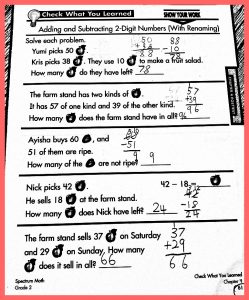 Check What You Learned
SHOW YOUR WORK
Adding and Subtracting 2-Digit Numbers (With Renaming)
Solve each problem.
Yumi picks 50 . 50 88
Kris picks 38 . They use 10 to make a fruit salad. +38 -10
How many do they have left? 78 88 78
The farm stand has two kinds of . 57
It has 57 of one kind and 39 of the other kind. +39
How many does the farm stand have in all? 96 96
Ayisha buys 60 , and 60
51 of them are ripe. -51
How many of the are not ripe? 9 9
Nick picks 42 . 42-18=
He sells 18 at the farm stand. 42
How many does Nick have left? 24 -18
24
The farm stand sells 37 on Saturday 37
and 29 on Sunday. How many +29
does it sell in all? 66 66
Spectrum Math
Grade 2
Check What You Learned
Chapter
81